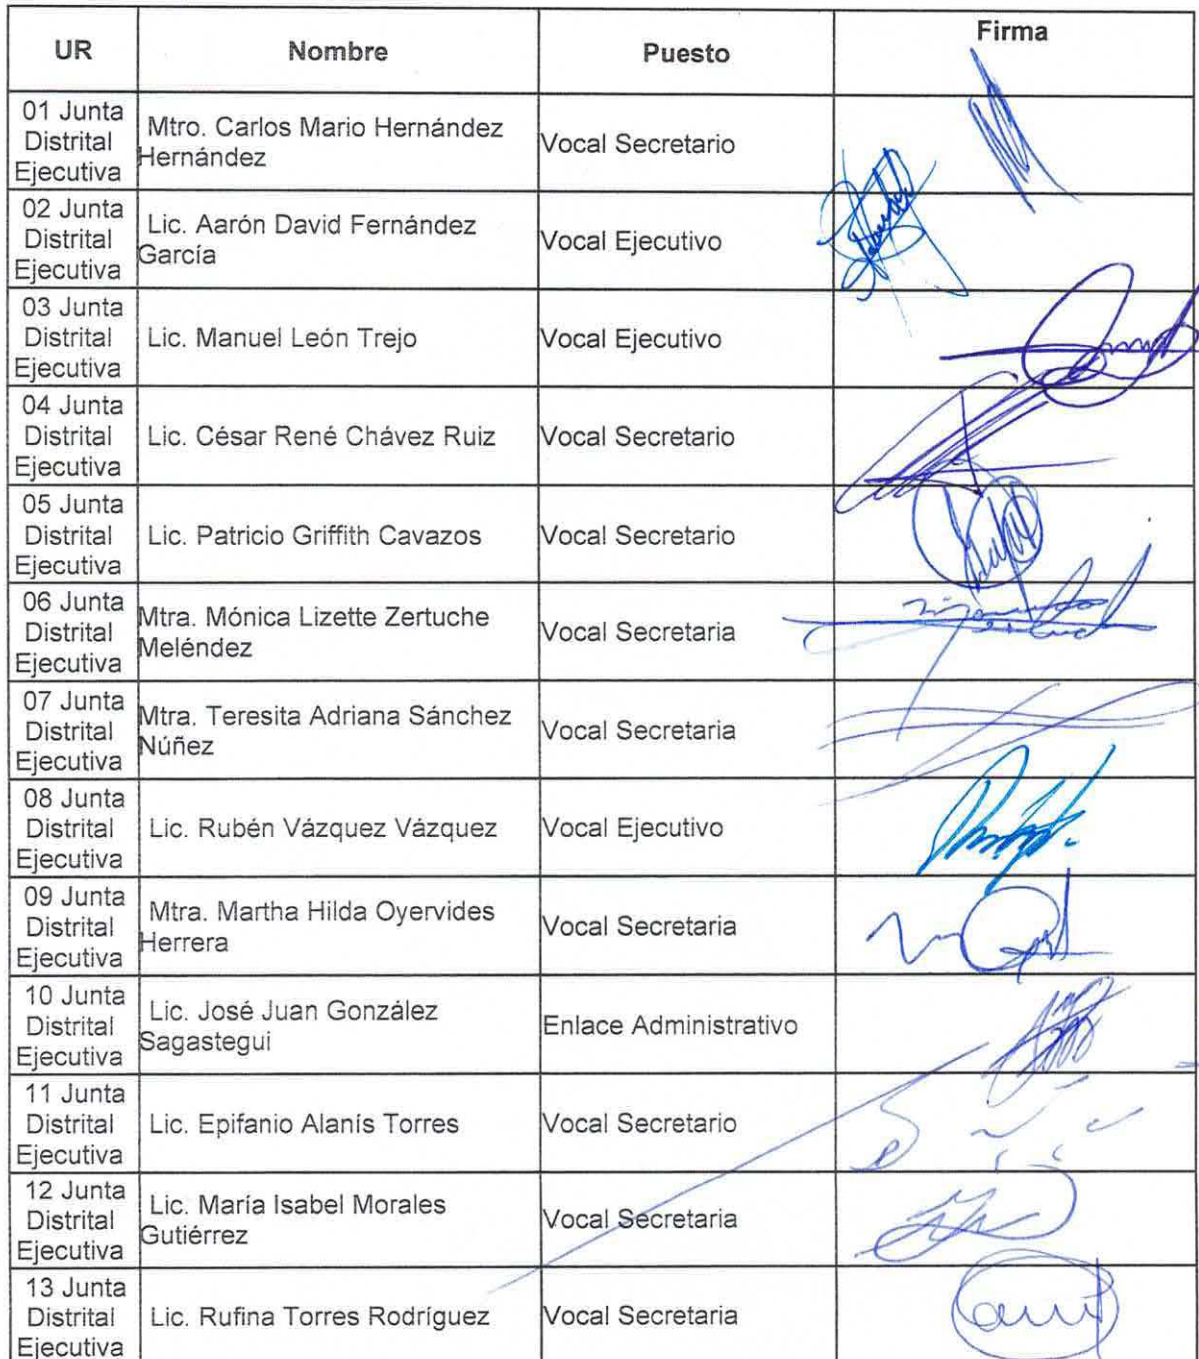 UR Nombre Puesto Firma
01 Junta
Distrital
Ejecutiva
Mtro. Carlos Mario Hernández
Hernández
Vocal Secretario
02 Junta
Distrital
Ejecutiva
Lic. Aarón David Fernández
García
Vocal Ejecutivo
03 Junta
Distrital
Ejecutiva
Lic. Manuel León Trejo
Vocal Ejecutivo
04 Junta
Distrital
Ejecutiva
Lic. César René Chávez Ruiz
Vocal Secretario
05 Junta
Distrital
Ejecutiva
Lic. Patricio Griffith Cavazos
Vocal Secretario
06 Junta
Distrital
Ejecutiva
Mtra. Mónica Lizette Zertuche
Meléndez
Vocal Secretaria
07 Junta
Distrital
Ejecutiva
Mtra. Teresita Adriana Sánchez
Núñez
Vocal Secretaria
08 Junta
Distrital
Ejecutiva
Lic. Rubén Vázquez Vázquez
Vocal Ejecutivo
09 Junta
Distrital
Ejecutiva
Mtra. Martha Hilda Oyervides
Herrera
Vocal Secretaria
10 Junta
Distrital
Ejecutiva
Lic. José Juan González
Sagastegui
Enlace Administrativo
11 Junta
Distrital
Ejecutiva
Lic. Epifanio Alanís Torres
Vocal Secretario
12 Junta
Distrital
Ejecutiva
Lic. María Isabel Morales
Gutiérrez
Vocal Secretaria
13 Junta
Distrital
Ejecutiva
Lic. Rufina Torres Rodríguez
Vocal Secretaria